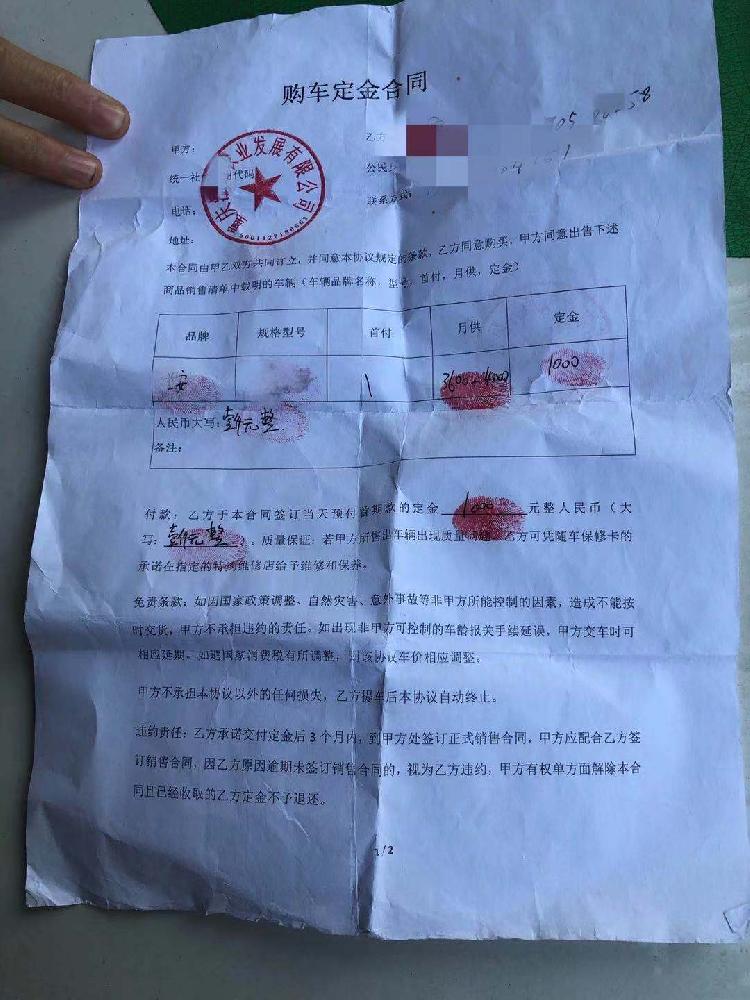 购车定金合同
甲方:
乙方
统一社 代码
公民
电话:
联系方式:
地址:
重庆 业发展有限公司
本合同由甲乙双方共同订立,并同意本协议规定的条款,乙方同意购买,甲方同意出售下述
商品销售清单中载明的车辆(车辆品牌名称,型号,首付,月供,定金)
品牌 规格型号 首付 月供 定金
1 3600-4000 1000
人民币大写:壹仟元整
备注:
付款:乙方于本合同签订当天预付首期款的定金 1000 元整人民币(大
写:壹仟元整 。质量保证:若甲方所售出车辆出现质量问题,乙方可凭随车保修卡的
承诺在指定的特约维修店给予维修和保养。
免责条款:如因国家政策调整、自然灾害、意外事故等非甲方所能控制的因素,造成不能按
时交货,甲方不承担违约的责任。如出现非甲方可控制的车龄报关手续延误,甲方交车时可
相应延期。如遇国家消费税有所调整,则该协议车价相应调整。
甲方不承担本协议以外的任何损失,乙方提车后本协议自动终止。
违约责任:乙方承诺交付定金后3个月内,到甲方处签订正式销售合同,甲方应配合乙方签
订销售合同,因乙方原因逾期未签订销售合同的,视为乙方违约,甲方有权单方面解除本合
同且已经收取的乙方定金不予退还。
1/2